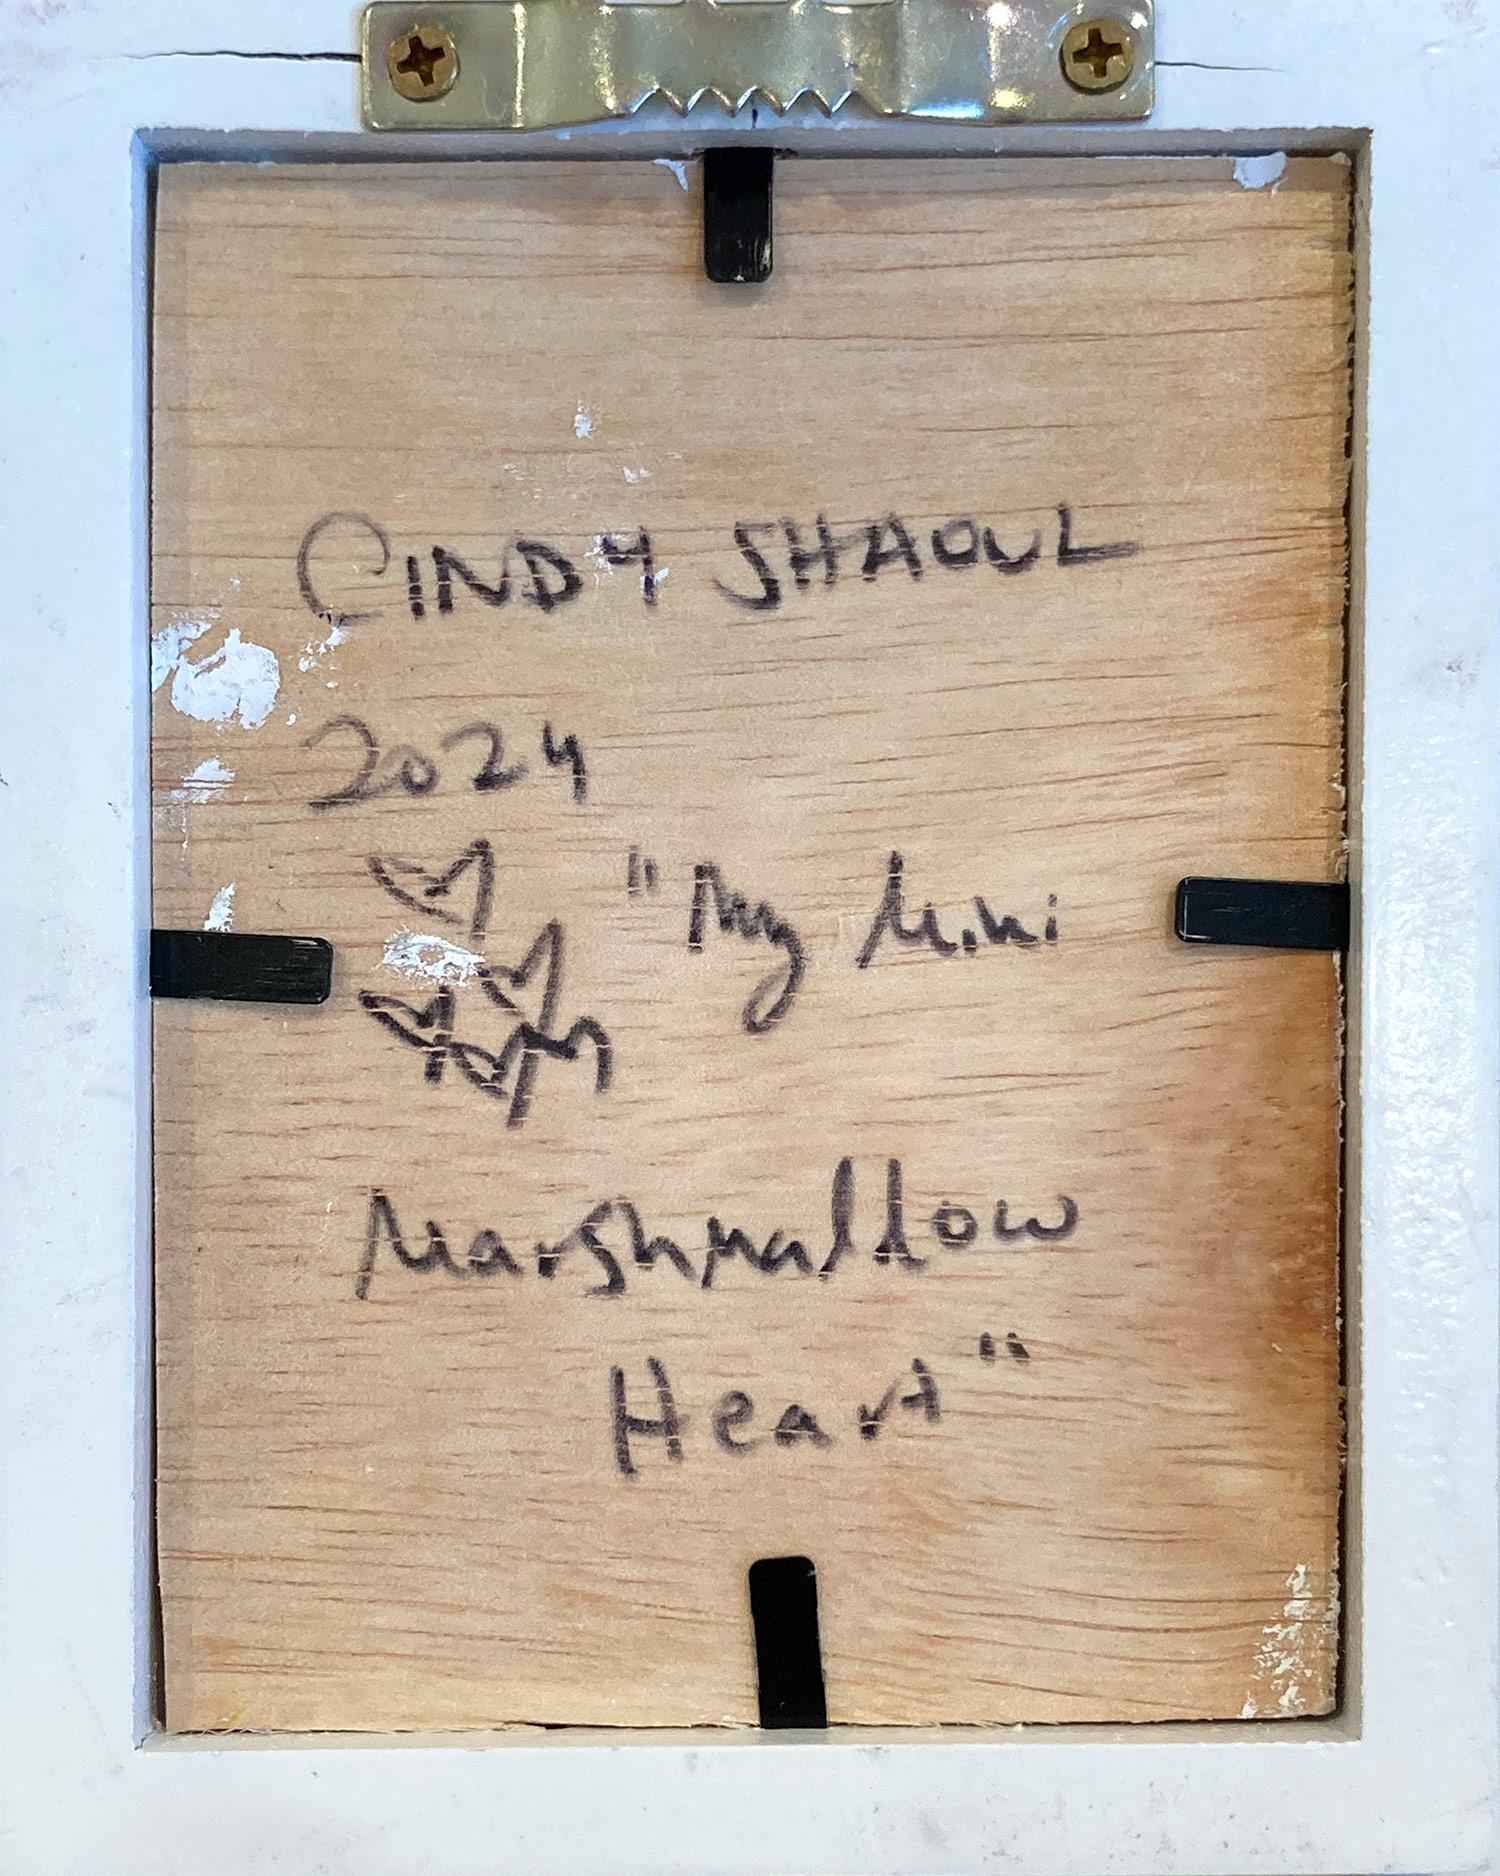 CINDY SHAOUL
2024
"My Mini
Marshmallow
Heart"